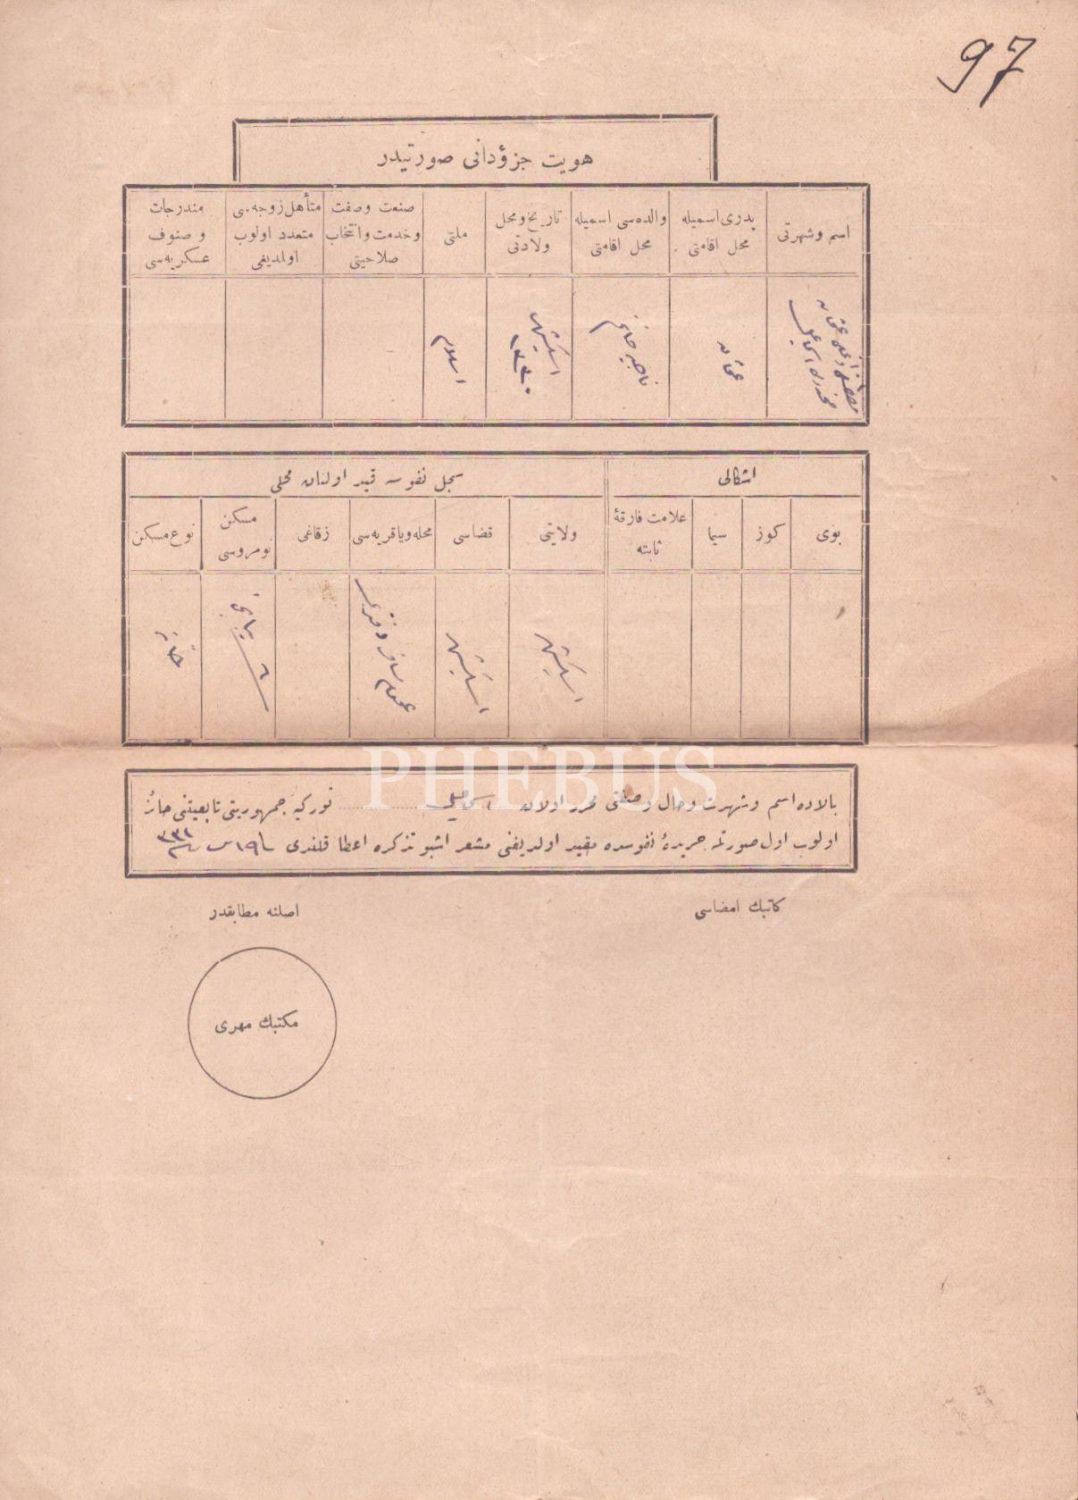 97
هويت جزؤدانی صورتيدر
اسم وشهرتی
پدری اسميله محل اقامتی
والده‌سی اسميله محل اقامتی
تاريخ ومحل ولادتی
ملتی
صنعت وصفت وخدمت وانتخاب صلاحيتی
متأهل زوجه‌سی متعدد اولوب اولمديغی
مندرجات و صنوف عسكريه‌سی
عثمان
اسلام
اشكالی
سجل نفوسه قيد اولنان محلی
بوی
كوز
سيما
علامت فارقۀ ثابته
ولايتی
قضاسی
محله وياقريه‌سی
زقاغی
مسكن نومروسی
نوع مسكن
اسكيشهر
اسكيشهر
خانه
PHEBUS
بالاده اسم وشهرت وحال وصفتی محرر اولان توركيه جمهوريتی تابعيتنی حائز
اولوب اول صورتله جريدۀ نفوسده مقيد اولديغنی مشعر اشبو تذكره اعطا قلندی
كاتبك امضاسی
اصلنه مطابقدر
مكتبك مهری